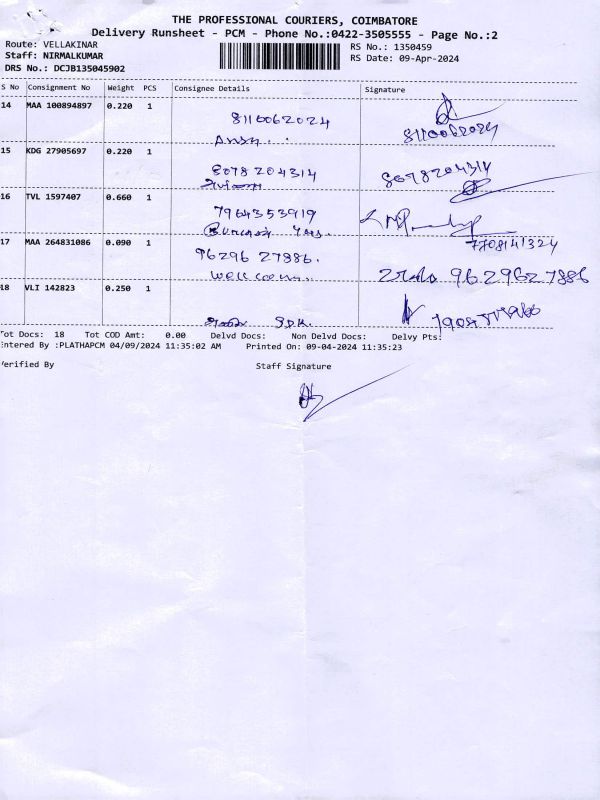 THE PROFESSIONAL COURIERS, COIMBATORE
Delivery Runsheet - PCM - Phone No.:0422-3505555 - Page No.:2
Route: VELLAKINAR
RS No.: 1350459
Staff: NIRMALKUMAR
RS Date: 09-Apr-2024
DRS No.: DCJB135045902
S No Consignment No Weight PCS Consignee Details Signature
14 MAA 100894897 0.220 1
8110062024
8110062024
15 KDG 27905697 0.220 1
8078204314 8078204314
16 TVL 1597407 0.660 1
7964353919
7708141324
17 MAA 264831086 0.090 1
96296 27886.
9629627886
18 VLI 142823 0.250 1
Tot Docs: 18 Tot COD Amt: 0.00 Delvd Docs: Non Delvd Docs: Delvy Pts:
Entered By :PLATHAPCM 04/09/2024 11:35:02 AM Printed On: 09-04-2024 11:35:23
Verified By Staff Signature